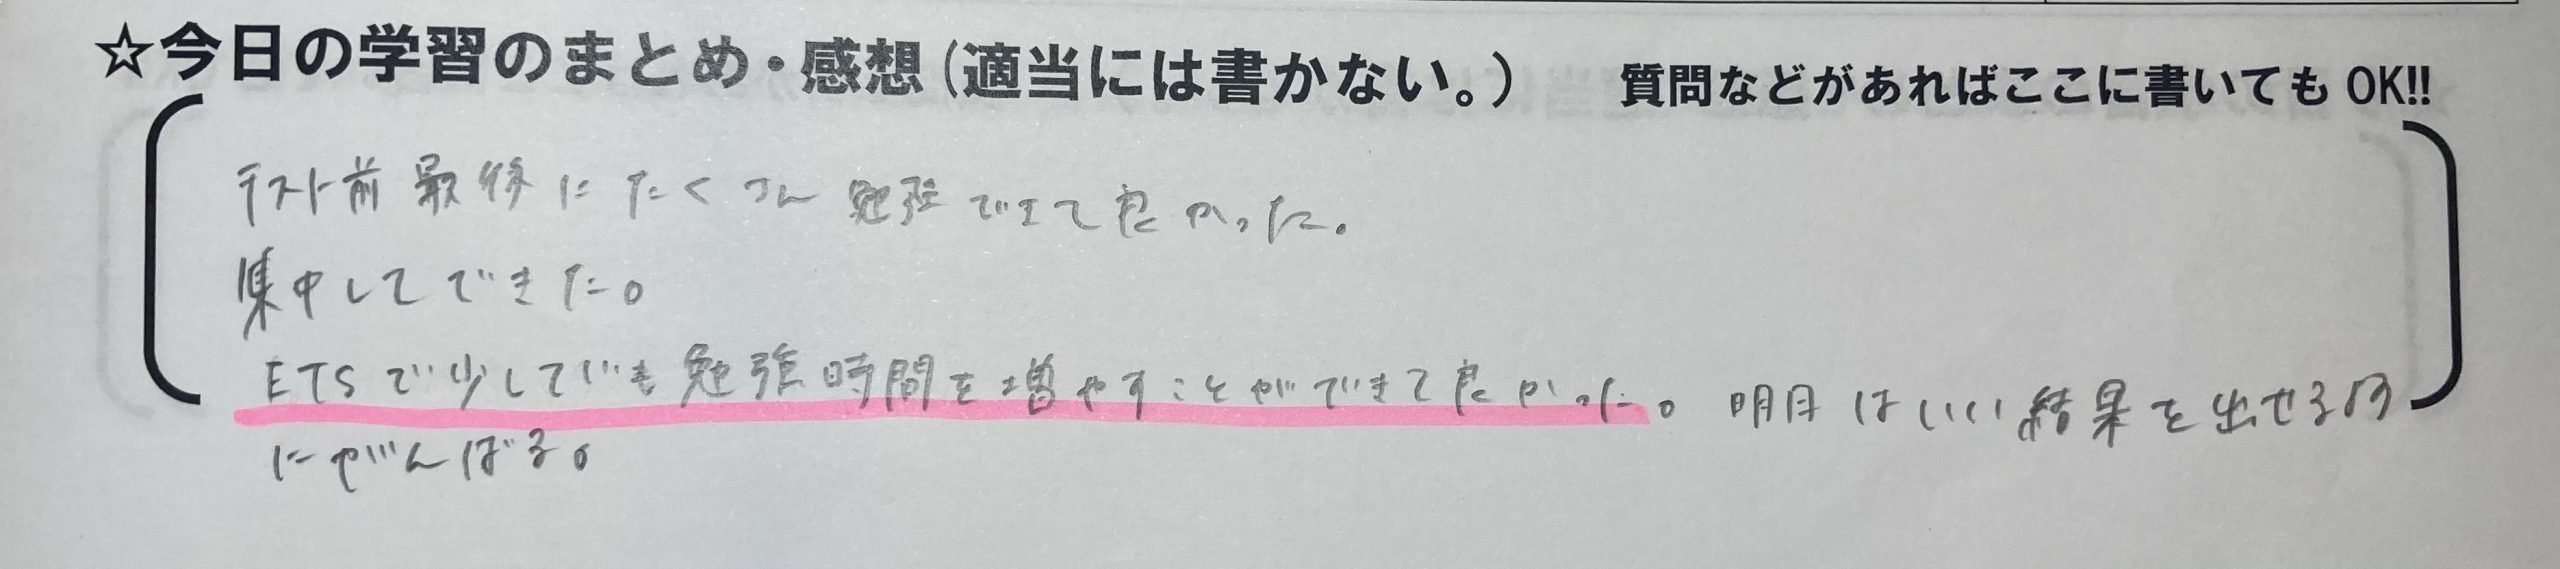 ☆今日の学習のまとめ・感想(適当には書かない。) 質問などがあればここに書いてもOK!!
テスト前最後にたくさん勉強できて良かった。
集中してできた。
ETSで少しでも勉強時間を増やすことができて良かった。明日はいい結果を出せるよう
にがんばる。